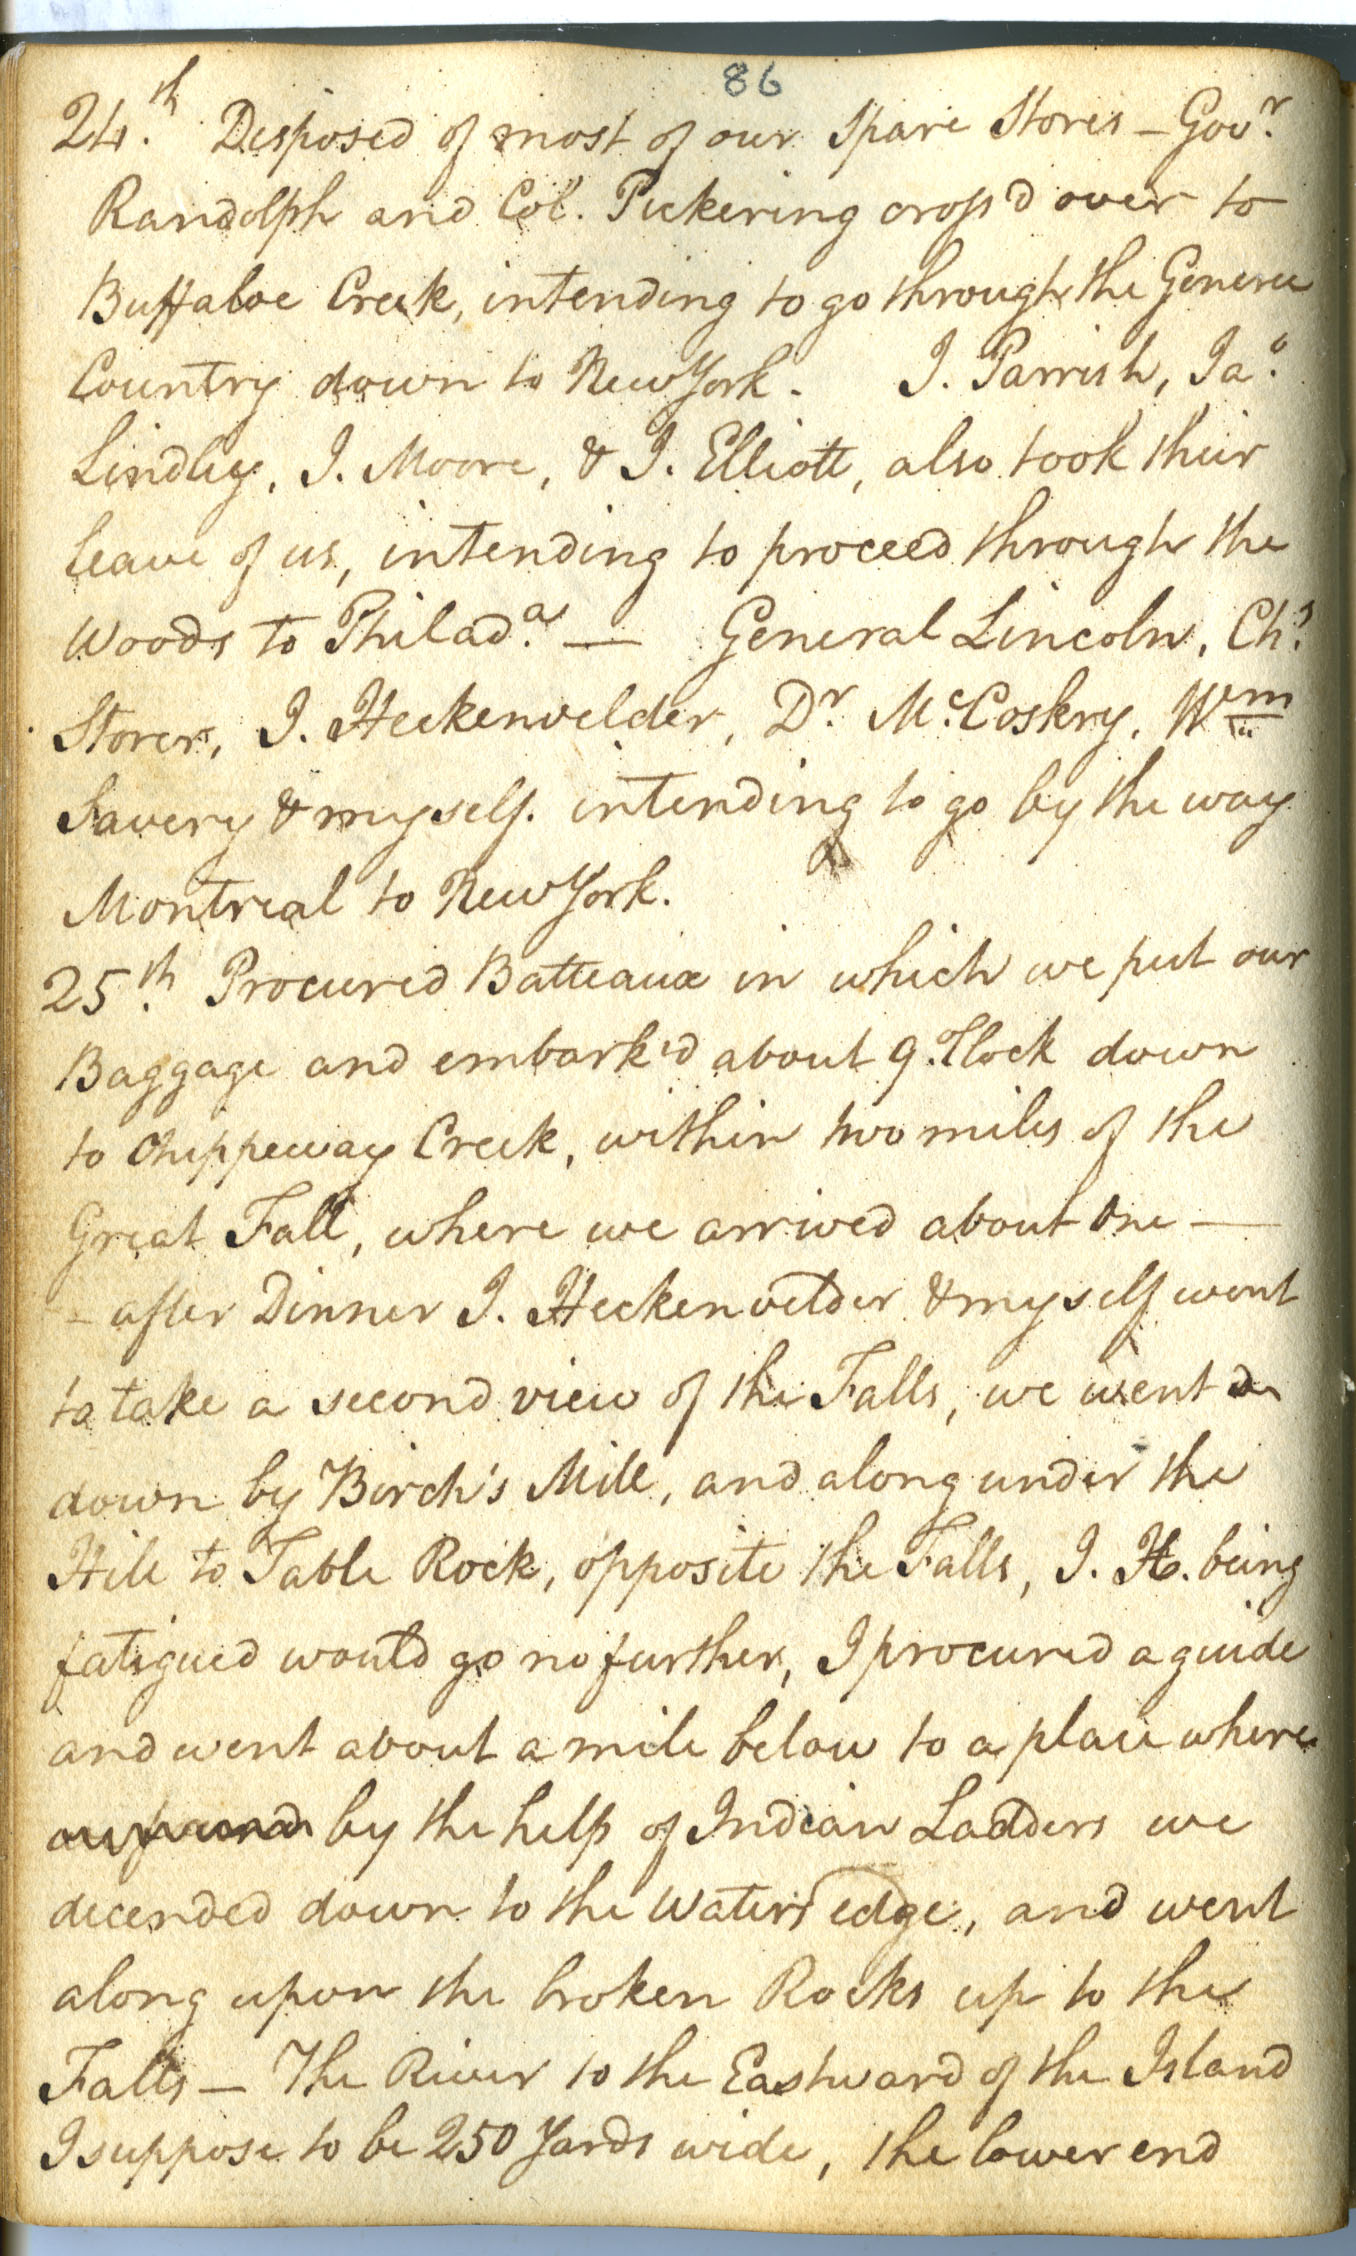 86
24.th Disposed of most of our Spare Stores – Gov.r
Randolph and Col. Pickering cross'd over to
Buffaloe Creek, intending to go through the Genesee
Country down to New York. J. Parrish, Ja.s
Lindley, J. Moore, & J. Elliott, also took their
leave of us, intending to proceed through the
Woods to Philad.a — General Lincoln, Ch.s
Storer, J. Heckenvelder, Dr. McCoskry, Wm
Savery & myself. intending to go by the way
Montreal to New York.
25.th Procured Batteaux in which we put our
Baggage and embark'd about 9.Clock down
to Chippeway Creek, within two miles of the
Great Fall, where we arrived about One —
– after Dinner J. Heckenvelder & myself went
to take a second view of the Falls, we went
down by Birch's Mill, and along under the
Hill to Table Rock, opposite the Falls, J. H. being
fatigued would go no further, I procured a guide
and went about a mile below to a place where
by the help of Indian Ladders we
decended down to the Waters edge, and went
along upon the broken Rocks up to the
Falls – The River to the Eastward of the Island
I suppose to be 250 Yards wide, the lower end